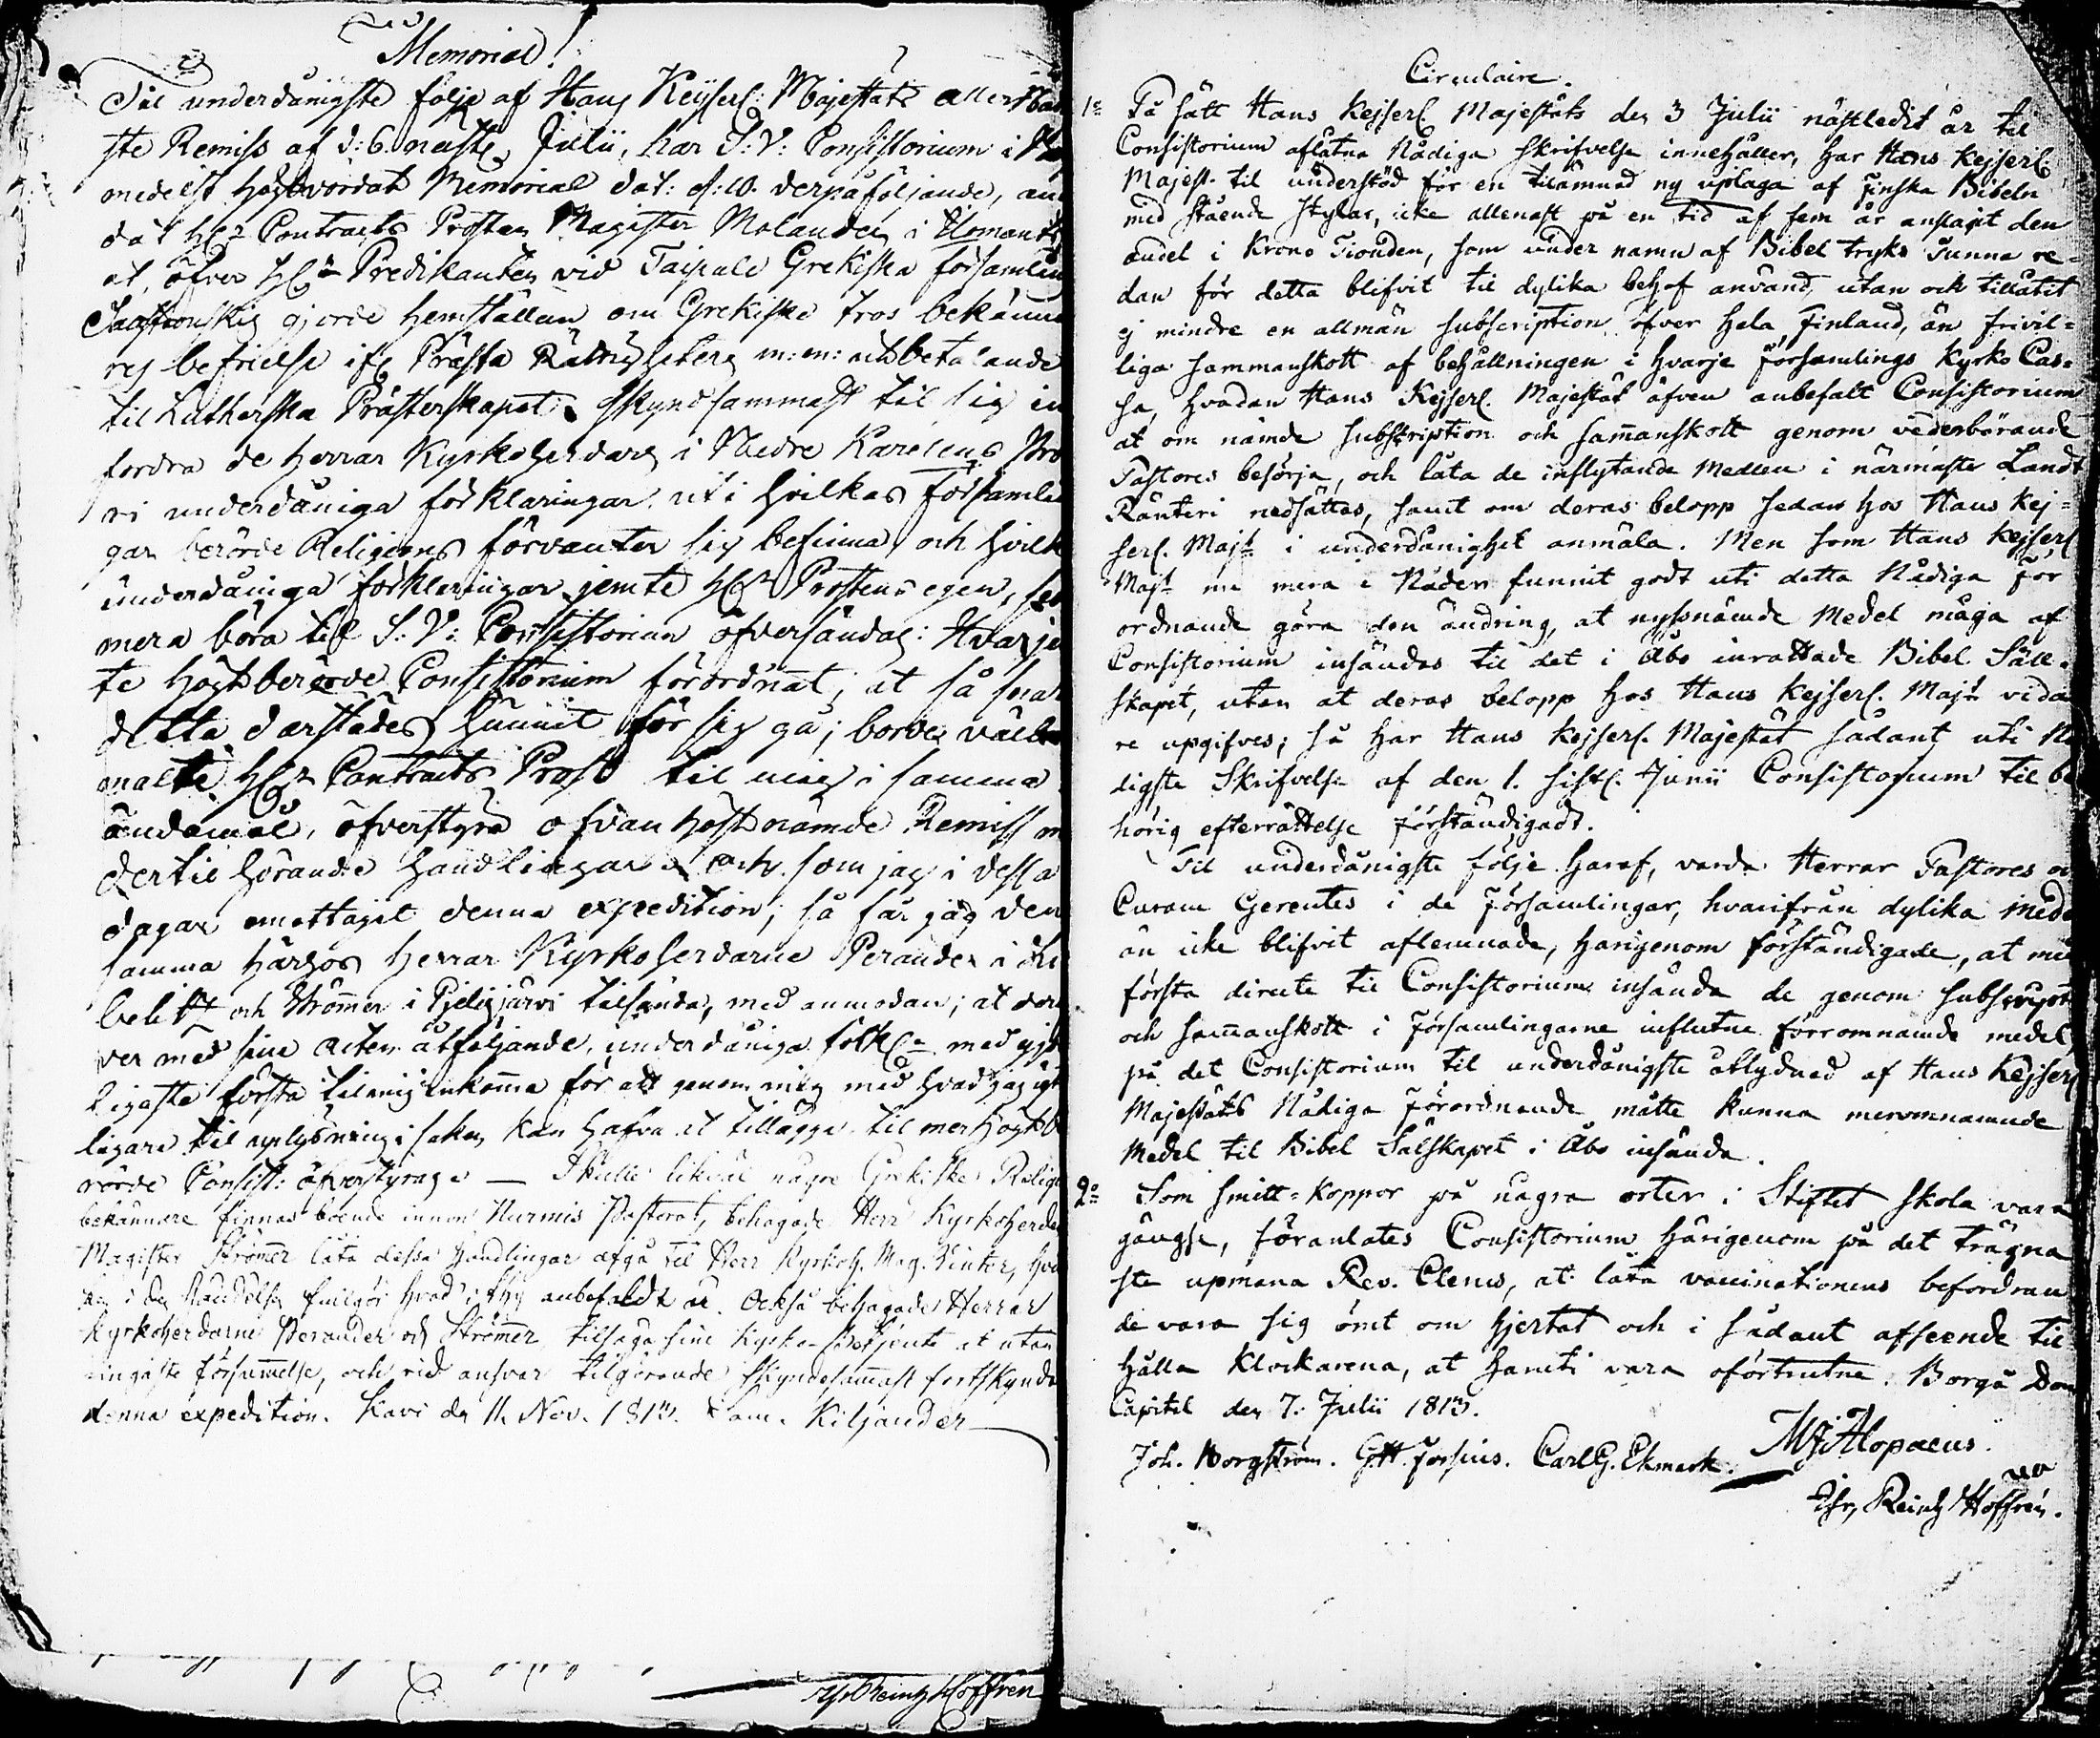 Memorial!
Til underdånigste följe af Hans Keyserl: Majestäts aller Nåd
ste Remiss af d: 6. nästl. Julii, har S: V: Consistorium i
medelst högtvordat Memorial dat: d: 10. derpåföljande, an
dat H:r Contracts Prosten Magister Molander i Ilomants
at, öfver H:r Predikanten vid Taipale Grekiska församling
gjorde hemställan om Grekiske tros bekänna
res befrielse ifr. Prästa Rättigheters m: m: utbetalande
til Lutherska Prästerskapet, skyndsammast til sig in
fordra de Herrar Kyrkoherdars i Nedre Karelens Pro
ri underdåniga förklaringar uti hvilkas församlin
gar berörde Religions förvanter sig befinna, och hvilk
underdåniga förklaringar jemte H:r Prostens egen, sed
mera böra till S: V: Consistorium öfversändas: Hvarje
te högtberörde Consistorium förordnat, at så snart
detta därstädes hunnit för sig gå, borde välbe
mälte H:r Contracts Prost til mig i samma
ändamål, öfverstyra ofvan högtnämde Remiss m
dertil hörande handlingar och som jag i dessa
dagar emottagit denna expedition; så får jag den
samma härhos Herrar Kyrkoherdarne Perander i Li
belits och Strömer i Pielisjärvi tilsända, med anmodan; at der
ver med sine acten åtföljande underdåniga förkl: med gjör
ligaste första til mig inkomma för att genom mig med hvad jag
ligare til uplysning i saken kan hafva at tillägga til mer högtbe
rörde Consist: öfverstyras. — Skulle likväl någre Grekiske Relig
bekännare finnas boende innom Nurmis Pastorat, behagade Herr Kyrkoherden
Magister Strömer låta dessa handlingar afgå til Herr Kyrkoh. Mag. Winter, hva
i den händelse fullgör hvad i thy anbefaldt är. Också behagade Herrar
Kyrkoherdarne Perander och Strömer tilsäga sine Kyrko Betjente at utan
ringaste försummelse, och vid ansvar tilgörande skyndesammast fortskynda
denna expedition. Kavi den 11. Nov. 1813. Sam. Kiljander
Reinh Hoffrén
Circulaire.
1:o På sätt Hans Kejserl. Majestäts den 3 Julii nästledit år til
Consistorium aflåtna Nådiga skrifvelse innehåller, har Hans Kejserl:
Majest. til understöd för en tilämnad ny uplaga af Finska Bibeln
med stående stylar, icke allenast på en tid af fem år anslagit den
andel i Krono Tionden, som under namn af Bibel tryks Tunna re-
dan för detta blifvit til dylika behof använd, utan och tillåtit
ej mindre en allmän subscription öfver hela Finland, än frivil-
liga sammanskott af behållningen i hvarje Församlings Kyrko Cas-
sa, hvadan Hans Kejserl. Majestät äfven anbefalt Consistorium
at om nämde subscription och samanskott genom vederbörande
Pastores besörja, och låta de inflytande Medlen i närmaste Landt
Ränteri nedsättas, samt om deras belopp sedan hos Hans Kej-
serl. Maj:t i underdånighet anmäla. Men som Hans Kejserl
Maj:t nu mera i Nåder funnit godt uti detta Nådiga För
ordnande göra den ändring, at nyssnämde Medel måga af
Consistorium insändas til det i Åbo inrättade Bibel Säll-
skapet, utan at deras belopp hos Hans Kejserl. Maj:t vida
re upgifves; så har Hans Kejserl. Majestät sådant uti Nå
digste Skrifvelse af den 1. sistl. Junii Consistorium til be
hörig efterrättelse förständigadt.
Til underdånigste följe häraf, varda Herrar Pastores oc
Curam Gerentes i de Församlingar, hvarifrån dylika mede
än icke blifvit aflemnade, harigenom förständigade, at med
första directe til Consistorium insända de genom subscript
och samanskott i Församlingarne influtne förromnämde medel,
på det Consistorium til underdånigste åtlydnad af Hans Kejserl
Majestäts Nådiga Förordnande måtte kunna meromnämnde
Medel til Bibel Sälskapet i Åbo insända.
2:o Som smitt-koppor på några orter i Stiftet skola vara
gängse, föranlates Consistorium härigenom på det trägna
ste upmana Rev. Clerus, at låta vaccinationens befordran
de vara sig ömt om hjertat och i sådant afseende til
hålla Klockarena, at hamti vara oförtrutne. Borgå Dom
Capitel den 7. Julii 1813.
Joh. Borgström. G.H. Forsius. Carl G. Ekmark. MJ Alopaeus.
Chr, Reinh Hoffrén.